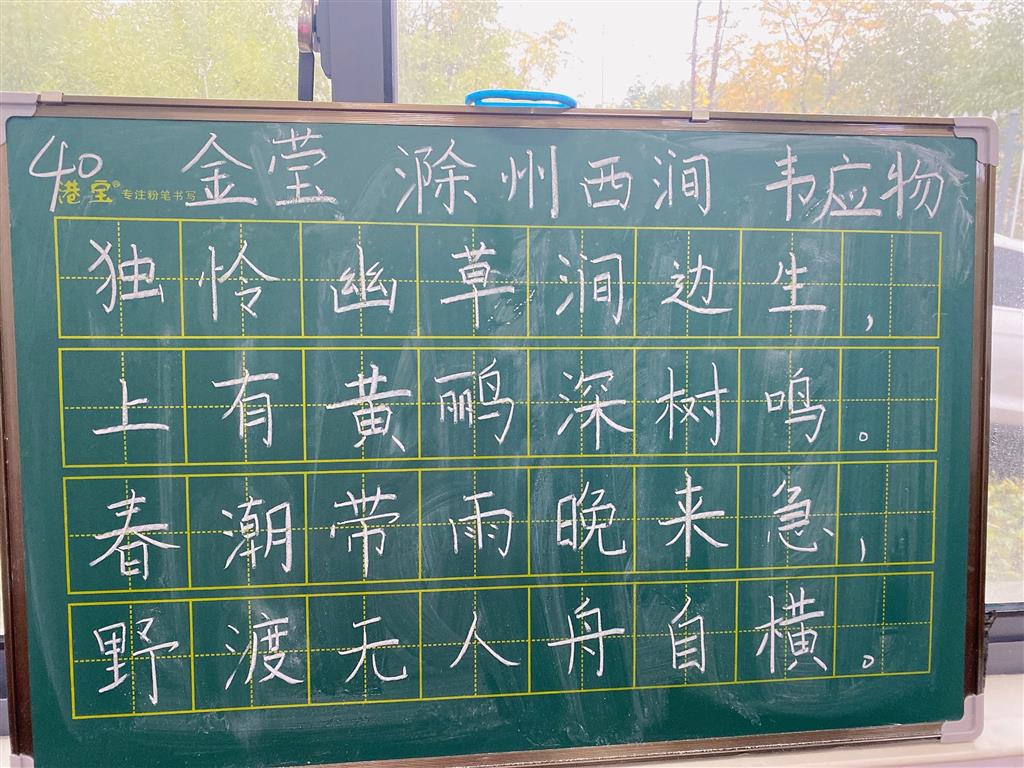 40 金莹 滁州西涧 韦应物
港宝® 专注粉笔书写
独怜幽草涧边生，
上有黄鹂深树鸣。
春潮带雨晚来急，
野渡无人舟自横。